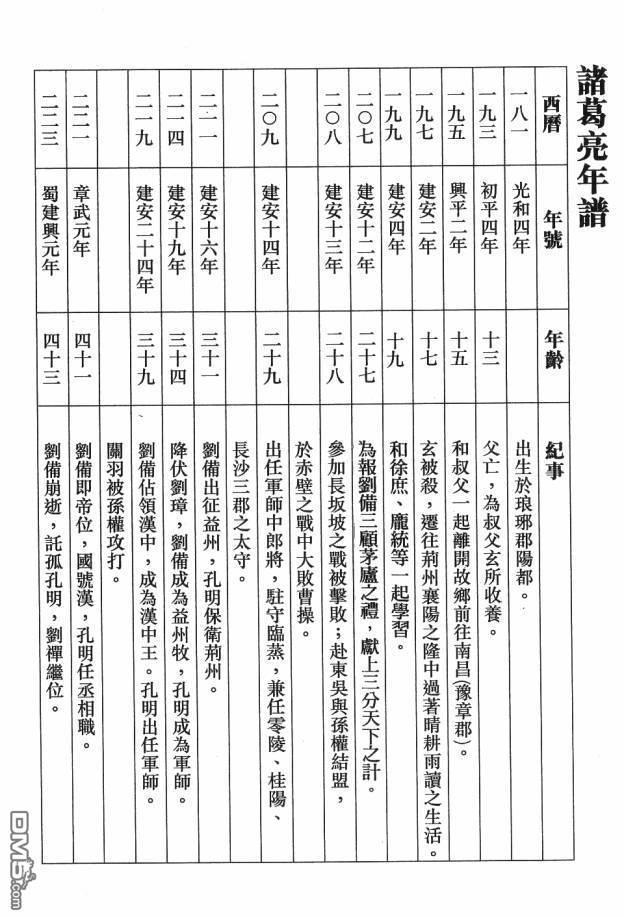 諸葛亮年譜
西曆 年號 年齡 紀事
一八一 光和四年 出生於琅琊郡陽都。
一九三 初平四年 十三 父亡，為叔父玄所收養。
一九五 興平二年 十五 和叔父一起離開故鄉前往南昌(豫章郡)。
一九七 建安二年 十七 玄被殺，遷往荊州襄陽之隆中過著晴耕雨讀之生活。
一九九 建安四年 十九 和徐庶、龐統等一起學習。
二〇七 建安十二年 二十七 為報劉備三顧茅廬之禮，獻上三分天下之計。
二〇八 建安十三年 二十八 參加長坂坡之戰被擊敗；赴東吳與孫權結盟，
於赤壁之戰中大敗曹操。
二〇九 建安十四年 二十九 出任軍師中郎將，駐守臨蒸，兼任零陵、桂陽、
長沙三郡之太守。
二一一 建安十六年 三十一 劉備出征益州，孔明保衛荊州。
二一四 建安十九年 三十四 降伏劉璋，劉備成為益州牧，孔明成為軍師。
二一九 建安二十四年 三十九 劉備佔領漢中，成為漢中王。孔明出任軍師。
關羽被孫權攻打。
二二一 章武元年 四十一 劉備即帝位，國號漢，孔明任丞相職。
二二三 蜀建興元年 四十三 劉備崩逝，託孤孔明，劉禪繼位。
DM5.com